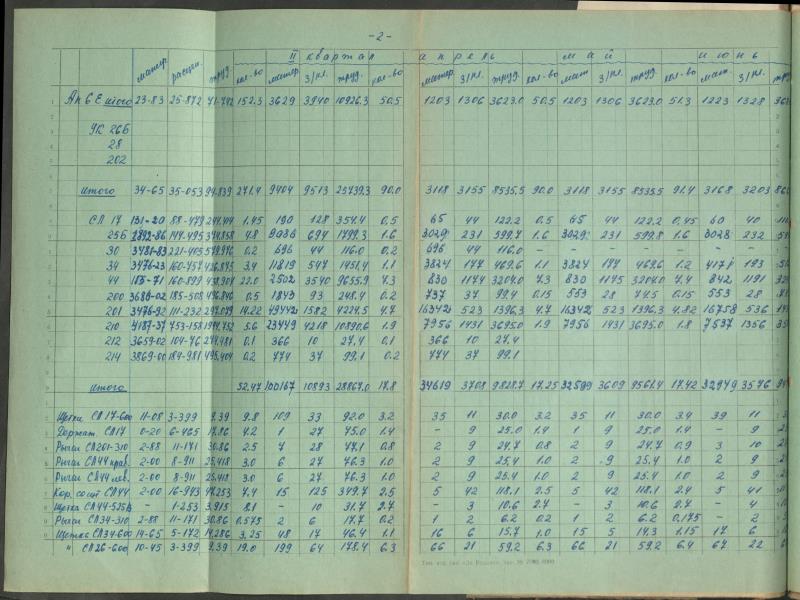 -2-
II квартал апрель май июнь
матер. расцен. труд. кол-во матер. з/пл. труд. кол-во матер. з/пл. труд. кол-во мат. з/пл. труд. кол-во мат. з/пл.
Ап 6 Е итого 23-83 25-872 152.3 3629 3940 10926.3 50.5 1203 1306 3623.0 50.5 1203 1306 3623.0 51.3 1223 1328
УК 26Б
28
202
итого 34-65 35-053 94.839 271.4 9404 9513 25739.3 90.0 3118 3155 8535.5 90.0 3118 3155 8535.5 91.4 3168 3203
СЛ 17 131-20 88-479 1.45 190 128 354.4 0.5 65 44 122.2 0.5 65 44 122.2 0.45 60 40
25Б 4.8 694 1799.3 1.6 3029 231 599.7 1.6 3029 231 599.8 1.6 3028 232
30 0.2 696 44 116.0 0.2 696 44 116.0 - - - - - - -
34 3476-23 3.4 11819 547 1451.4 1.1 3824 177 469.6 1.1 3824 177 469.6 1.2 193
44 22.0 2502 3540 9655.9 7.3 830 1174 3204.0 7.3 830 1175 3204.0 7.4 842 1191
200 3688-02 0.5 1843 93 248.4 0.2 737 37 99.4 0.15 553 28 74.5 0.15 553 28
201 3476-92 111-232 14.22 49442 1582 4224.5 4.7 16342 523 1396.3 4.7 16342 523 1396.3 4.82 16758 536
210 4187-37 753-158 5.6 23449 4218 10890.6 1.9 7956 1431 3695.0 1.9 7956 1431 3695.0 1.8 7537 1356
212 3659-02 104-76 0.1 366 10 27.4 0.1 366 10 27.4
214 3869-00 184-981 0.2 774 37 99.1 0.2 774 37 99.1
итого 52.47 100167 10893 28867.0 17.8 34619 3708 9828.7 17.25 32599 3609 9561.4 17.42 32949 3576
Щетка СЛ 17-600 11-08 3-399 9.39 9.8 109 33 92.0 3.2 35 11 30.0 3.2 35 11 30.0 3.4 39 11
Держат. СЛ17 0-20 6-465 17.86 4.2 1 27 75.0 1.4 - 9 25.0 1.4 1 9 25.0 1.4 - 9
Рычаг СЛ201-310 2-88 11-171 30.86 2.5 7 28 77.1 0.8 2 9 24.7 0.8 2 9 24.7 0.9 3 10
Рычаг СЛ44 прав. 2-00 8-911 25.418 3.0 6 27 76.3 1.0 2 9 25.4 1.0 2 9 25.4 1.0 2 9
Рычаг СЛ44 лев. 2-00 8-911 25.418 3.0 6 27 76.3 1.0 2 9 25.4 1.0 2 9 25.4 1.0 2 9
СЛ44 2-00 16-943 47.253 7.4 15 125 349.7 2.5 5 42 118.1 2.5 5 42 118.1 2.4 5 41
Щетка СЛ44-525Б - 1-253 3.915 8.1 - 10 31.7 2.7 - 3 10.6 2.7 - 3 10.6 2.7 - 4
Рычаг СЛ34-310 2-88 11-171 30.86 0.575 2 6 17.7 0.2 1 2 6.2 0.2 1 2 6.2 0.175 - 2
Щетка СЛ34-600 14-65 5-172 14.286 3.25 48 17 46.4 1.1 16 6 15.7 1.0 15 5 14.3 1.15 17 6
" СЛ26-600 10-45 3-399 9.39 19.0 199 64 178.4 6.3 66 21 59.2 6.3 66 21 59.2 6.4 67 22